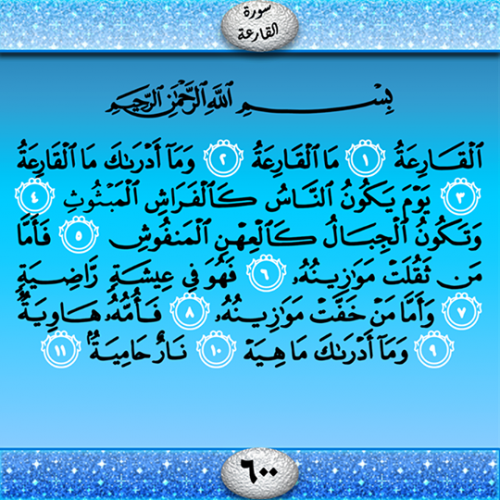 سورة
القارعة
بِسْمِ ٱللَّهِ ٱلرَّحْمَٰنِ ٱلرَّحِيمِ
ٱلْقَارِعَةُ ١ مَا ٱلْقَارِعَةُ ٢ وَمَآ أَدْرَىٰكَ مَا ٱلْقَارِعَةُ
٣ يَوْمَ يَكُونُ ٱلنَّاسُ كَٱلْفَرَاشِ ٱلْمَبْثُوثِ ٤
وَتَكُونُ ٱلْجِبَالُ كَٱلْعِهْنِ ٱلْمَنفُوشِ ٥ فَأَمَّا
مَن ثَقُلَتْ مَوَٰزِينُهُۥ ٦ فَهُوَ فِى عِيشَةٍ رَّاضِيَةٍ
٧ وَأَمَّا مَنْ خَفَّتْ مَوَٰزِينُهُۥ ٨ فَأُمُّهُۥ هَاوِيَةٌ
٩ وَمَآ أَدْرَىٰكَ مَا هِيَهْ ١٠ نَارٌ حَامِيَةٌۢ ١١
٦٠٠